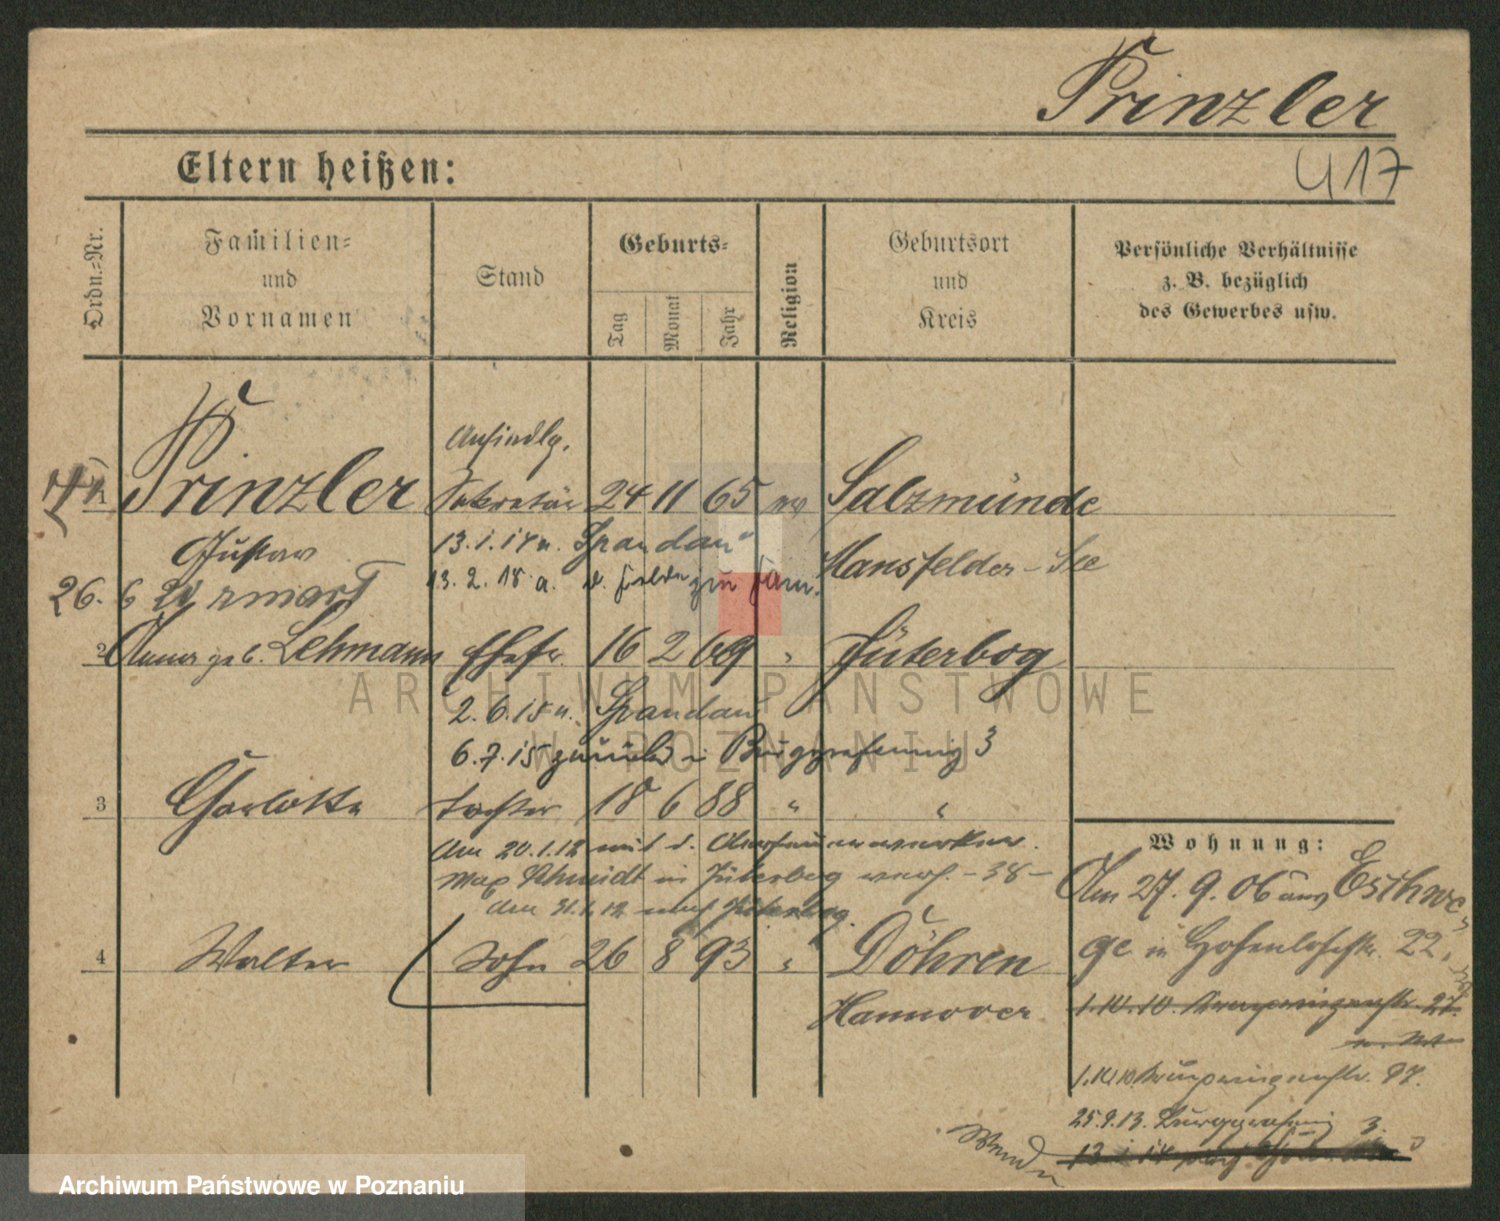 Prinzler
U 17
Eltern heißen:
Ordn.-Nr.
Familien-
und
Vornamen
Stand
Geburts-
Tag
Monat
Jahr
Religion
Geburtsort
und
Kreis
Persönliche Verhältnisse
z. B. bezüglich
des Gewerbes usw.
Ansiedlg.
1 Prinzler Sekretär 24 11 65 ev Salzmünde
Gustav 13.1.14 n. Spandau Mansfelder-See
13.2.18 a. d. Felde zur Fam.
26. 6
2 Anna geb. Lehmann Ehefr. 16 2 69 " Jüterbog
2.6.15 n. Spandau
6.7.15 zurück Burggrafenring 3
3 Charlotte Tochter 18 6 88 " "
Am 20.1.12 mit d. Oberfeuerwerker
Max Schmidt in Jüterbog verh. -38-
am 31.1.12 nach Jüterbog.
4 Walter Sohn 26 8 93 " Döhren
Hannover
Wohnung:
Am 27. 9. 06 aus Eschwe-
ge in Hohenlohestr. 22.
1.10.10. Kronprinzenstr. 27.
1.10.10. Kronprinzenstr. 97.
25.9.13. Burggrafenring 3.
13 1 14 nach
Wenden
ARCHIWUM PAŃSTWOWE
W POZNANIU
Archiwum Państwowe w Poznaniu